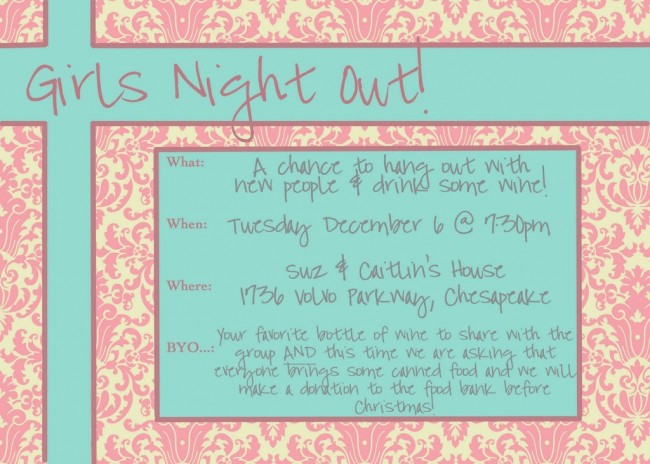 Girls Night Out!
What: A chance to hang out with
new people & drink some wine!
When: Tuesday December 6 @ 7:30pm
Suz & Caitlin's House
Where: 1736 Volvo Parkway, Chesapeake
BYO...: Your favorite bottle of wine to share with the
group AND this time we are asking that
everyone brings some canned food and we will
make a donation to the food bank before
Christmas!